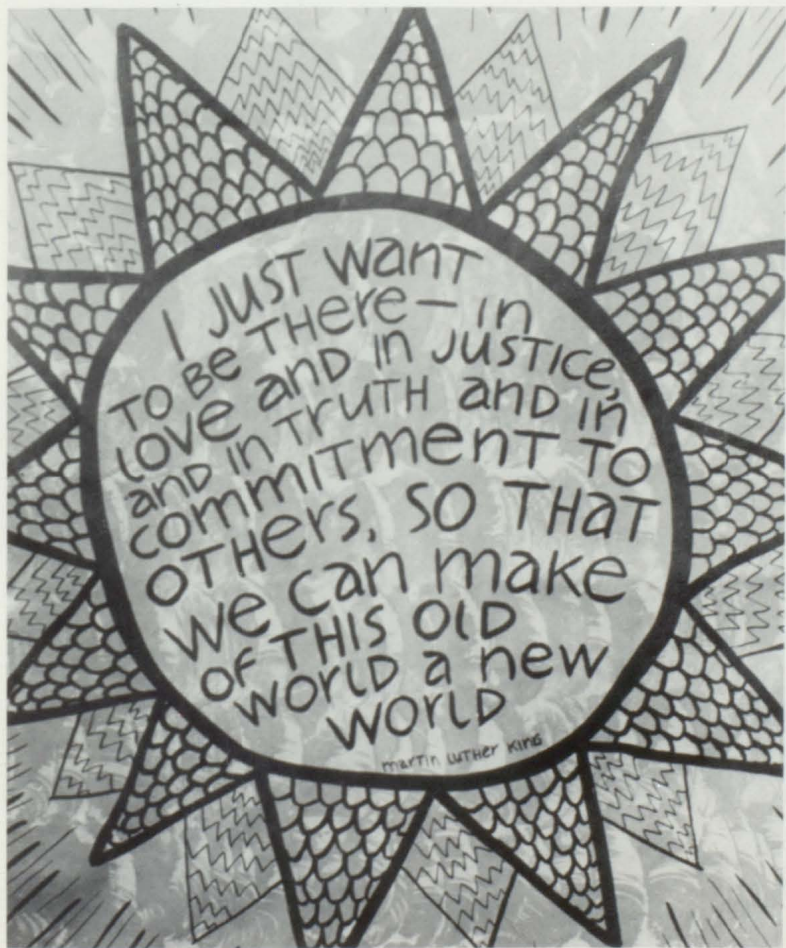 I JUST Want
TO Be THere — in
Love anD in JUSTICe,
anD in TrUTH anD in
commITmenT TO
OTHers, SO THaT
we can make
OF THIS OLD
WorLD a new
WorLD
marTin LUTHer KinG